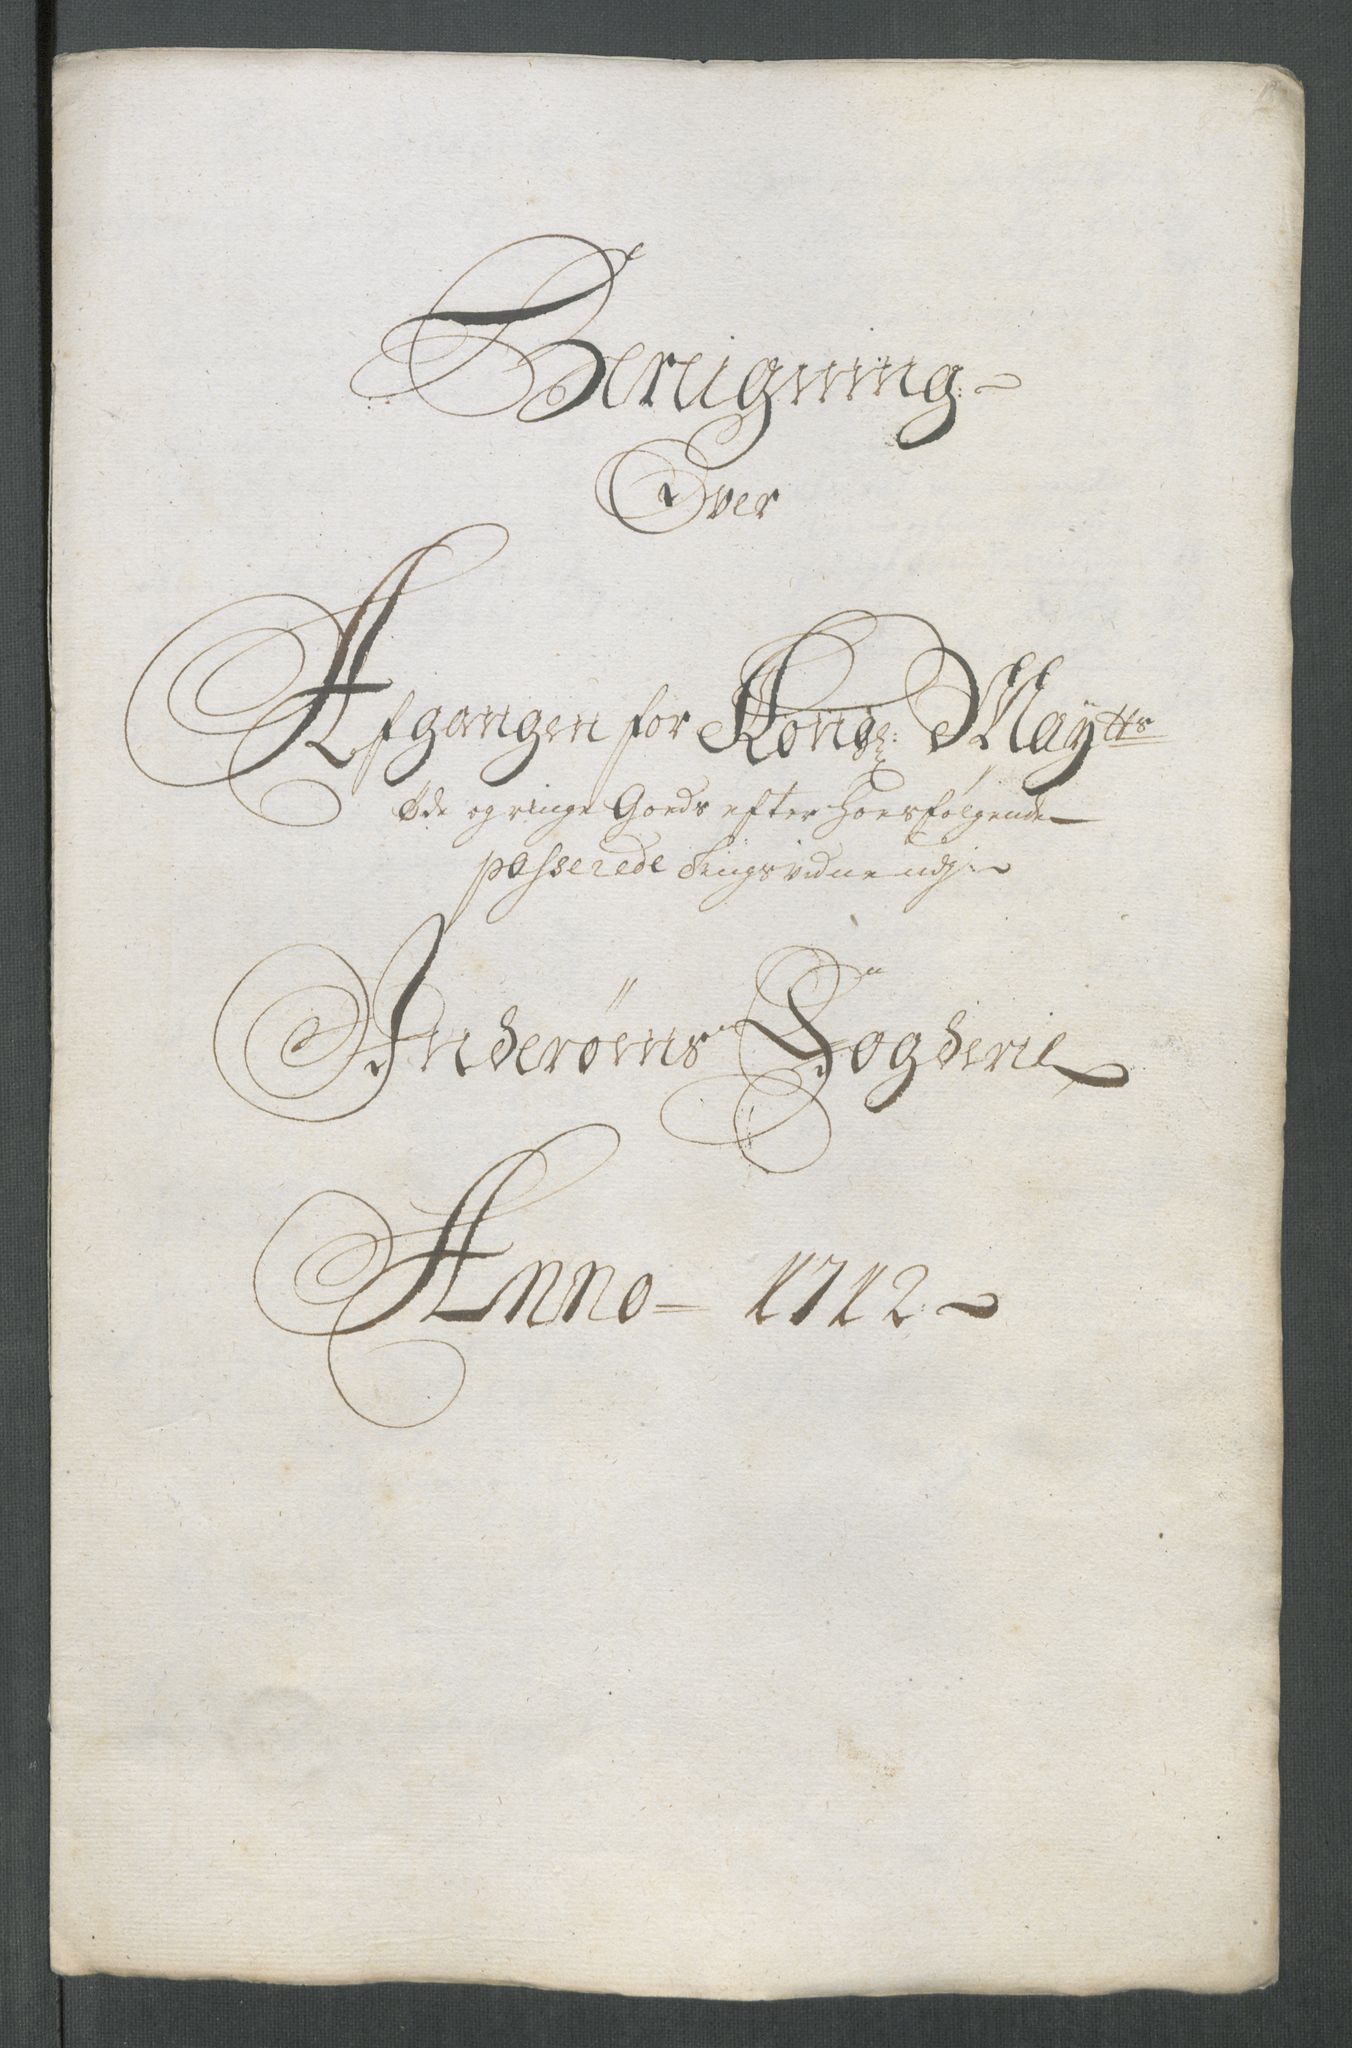 Bereigning
Over
Afgangen for Kongl: Maytts
Öde og ringe Goeds efter hoesfølgende
passerede Tingsvidne udj
Inderöens Fogderie
Anno 1712